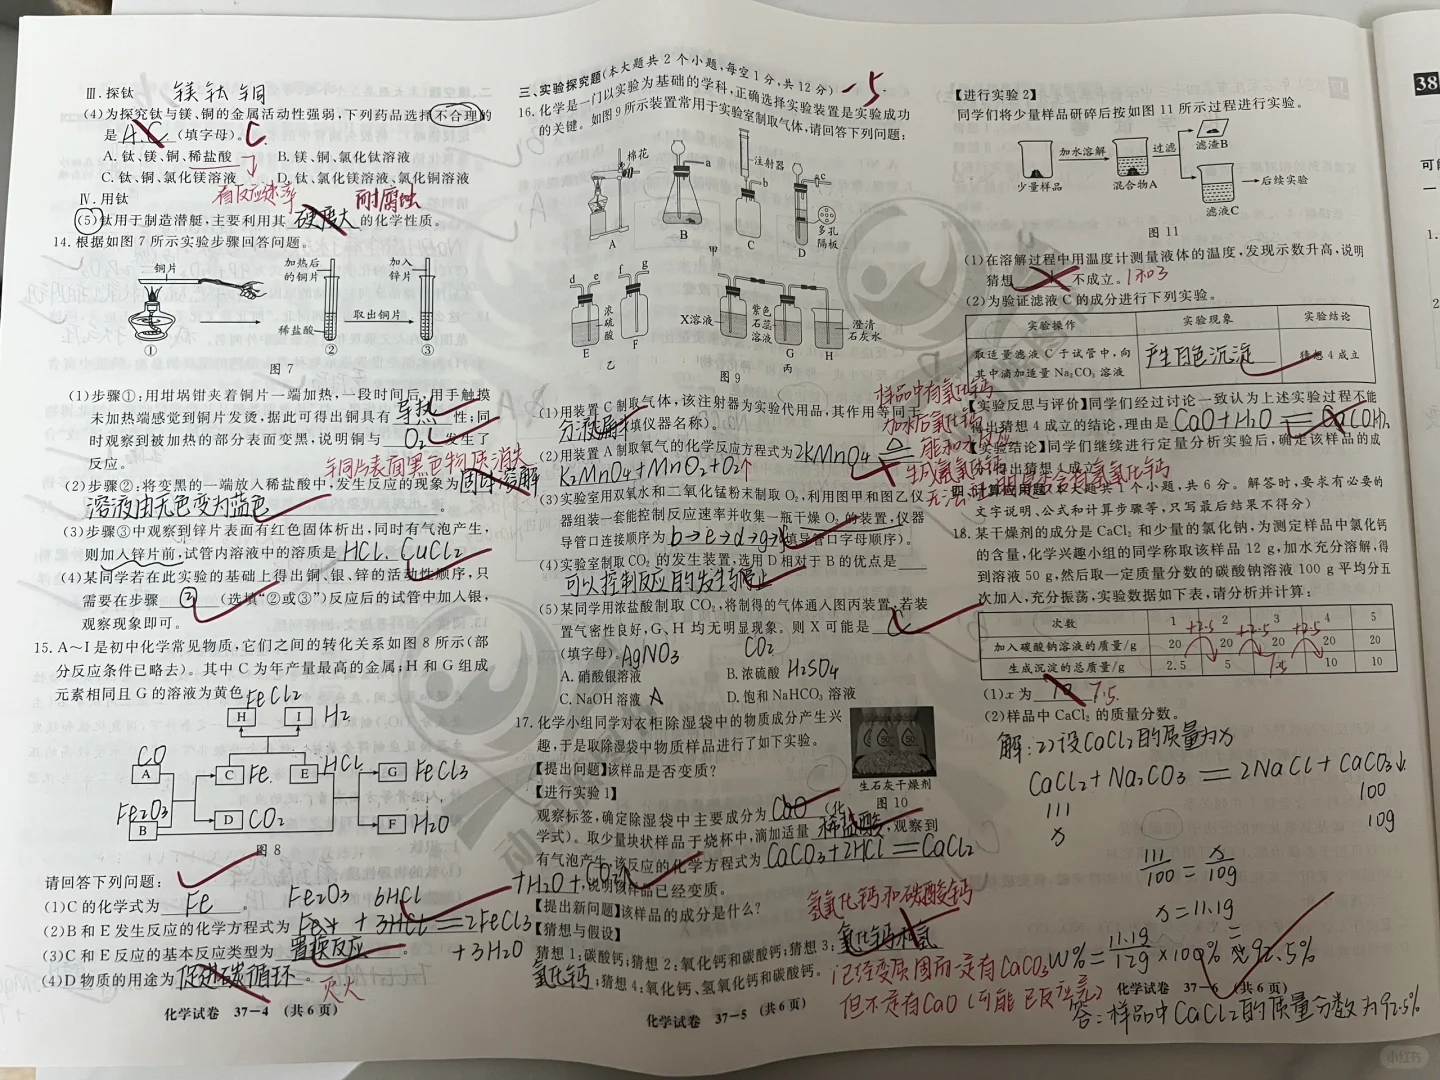 Ⅲ. 探钛 镁 钛 铜
(4)为探究钛与镁、铜的金属活动性强弱,下列药品选择不合理的
是 A.C (填字母)。 C
A. 钛、镁、铜、稀盐酸 B. 镁、铜、氯化钛溶液
C. 钛、铜、氯化镁溶液 D. 钛、氯化镁溶液、氯化铜溶液
看反应速率 耐腐蚀
Ⅳ. 用钛
(5)钛用于制造潜艇,主要利用其 硬度大 的化学性质。
14. 根据如图 7 所示实验步骤回答问题。
铜片
加热后的铜片
加入锌片
稀盐酸
取出铜片
① ② ③
图 7
(1)步骤①:用坩埚钳夹着铜片一端加热,一段时间后,用手触摸
未加热端感觉到铜片发烫,据此可得出铜具有 导热 性;同
时观察到被加热的部分表面变黑,说明铜与 O₂ 发生了
反应。
铜片表面黑色物质消失
(2)步骤②:将变黑的一端放入稀盐酸中,发生反应的现象为 固体溶解
溶液由无色变为蓝色 。
(3)步骤③中观察到锌片表面有红色固体析出,同时有气泡产生,
则加入锌片前,试管内溶液中的溶质是 HCl、CuCl₂
(4)某同学若在此实验的基础上得出铜、银、锌的活动性顺序,只
需要在步骤 ② (选填“②或③”)反应后的试管中加入银,
观察现象即可。
15. A～I 是初中化学常见物质,它们之间的转化关系如图 8 所示(部
分反应条件已略去)。其中 C 为年产量最高的金属;H 和 G 组成
元素相同且 G 的溶液为黄色。
FeCl₂
H I H₂
CO
A C Fe E HCl G FeCl₃
Fe₂O₃
B D CO₂ F H₂O
图 8
请回答下列问题:
(1)C 的化学式为 Fe 。
Fe₂O₃ 6HCl
(2)B 和 E 发生反应的化学方程式为 + 3HCl = 2FeCl₃
+3H₂O
(3)C 和 E 反应的基本反应类型为 置换反应 。
(4)D 物质的用途为 促进碳循环 。 灭火
化学试卷 37-4 (共 6 页)
三、实验探究题(本大题共 2 个小题,每空 1 分,共 12 分) -5
16. 化学是一门以实验为基础的学科,正确选择实验装置是实验成功
的关键。如图 9 所示装置常用于实验室制取气体,请回答下列问题:
棉花 a 注射器 b c 多孔隔板
A B C D
甲
d e f g
浓硫酸
E F
乙
X溶液 紫色石蕊溶液 澄清石灰水
G H
丙
图 9
(1)用装置 C 制取气体,该注射器为实验代用品,其作用等同于
分液漏斗 (填仪器名称)。
(2)用装置 A 制取氧气的化学反应方程式为 2KMnO₄ △
K₂MnO₄+MnO₂+O₂↑
(3)实验室用双氧水和二氧化锰粉末制取 O₂,利用图甲和图乙仪
器组装一套能控制反应速率并收集一瓶干燥 O₂ 的装置,仪器
导管口连接顺序为 b→e→d→g→f (填导管口字母顺序)。
(4)实验室制取 CO₂ 的发生装置,选用 D 相对于 B 的优点是
可以控制反应的发生与停止
(5)某同学用浓盐酸制取 CO₂,将制得的气体通入图丙装置,若装
置气密性良好,G、H 均无明显现象。则 X 可能是 C
(填字母)。 AgNO₃ CO₂
A. 硝酸银溶液 B. 浓硫酸 H₂SO₄
C. NaOH 溶液 A D. 饱和 NaHCO₃ 溶液
17. 化学小组同学对衣柜除湿袋中的物质成分产生兴
趣,于是取除湿袋中物质样品进行了如下实验。
【提出问题】该样品是否变质?
生石灰干燥剂
图 10
【进行实验 1】
观察标签,确定除湿袋中主要成分为 CaO (化
学式)。取少量块状样品于烧杯中,滴加适量 稀盐酸 ,观察到
有气泡产生,该反应的化学方程式为 CaCO₃+2HCl = CaCl₂
+H₂O+CO₂↑ ,说明该样品已经变质。
【提出新问题】该样品的成分是什么? 氢氧化钙和碳酸钙
【猜想与假设】
猜想 1:碳酸钙;猜想 2:氧化钙和碳酸钙;猜想 3: 氧化钙和氢
氧化钙 ;猜想 4:氧化钙、氢氧化钙和碳酸钙。
已经变质 因而一定有 CaCO₃
但不是有CaO(可能已反应完)
化学试卷 37-5 (共 6 页)
【进行实验 2】
同学们将少量样品研碎后按如图 11 所示过程进行实验。
少量样品 加水溶解 混合物A 过滤 滤渣B 滤液C 后续实验
图 11
(1)在溶解过程中用温度计测量液体的温度,发现示数升高,说明
猜想 不成立。 1和3
(2)为验证滤液 C 的成分进行下列实验。
实验操作 实验现象 实验结论
取适量滤液 C 于试管中,向其中滴加适量 Na₂CO₃ 溶液 产生白色沉淀 猜想 4 成立
样品中有氧化钙
加水后氧化钙
能和水反应
生成氢氧化钙
【实验反思与评价】同学们经过讨论一致认为上述实验过程不能
得出猜想 4 成立的结论,理由是 CaO+H₂O = Ca(OH)₂
【实验结论】同学们继续进行定量分析实验后,确定该样品的成
分,得出猜想 4 成立。
四、计算应用题(本大题共 1 个小题,共 6 分。解答时,要求有必要的
文字说明、公式和计算步骤等,只写最后结果不得分)
18. 某干燥剂的成分是 CaCl₂ 和少量的氯化钠,为测定样品中氯化钙
的含量,化学兴趣小组的同学称取该样品 12 g,加水充分溶解,得
到溶液 50 g,然后取一定质量分数的碳酸钠溶液 100 g 平均分五
次加入,充分振荡,实验数据如下表,请分析并计算:
次数 1 2 3 4 5
+2.5 +2.5 +2.5
加入碳酸钠溶液的质量/g 20 20 20 20 20
生成沉淀的总质量/g 2.5 5 7.5 10 10
(1)x 为 7.5.
(2)样品中 CaCl₂ 的质量分数。
解:(2)设CaCl₂的质量为x
CaCl₂+Na₂CO₃ = 2NaCl+CaCO₃↓
111 100
x 10g
111/100 = x/10g
x=11.1g
W%= 11.1g/12g ×100% = 92.5%
化学试卷 37-6 (共 6 页)
答:样品中CaCl₂的质量分数为92.5%
38
小红书